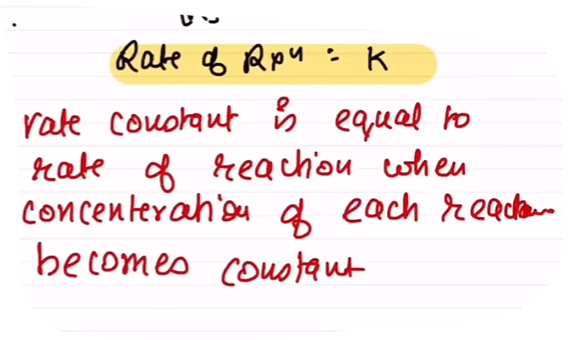 Rate of Rxn = K
rate constant is equal to
rate of reaction when
concenteration of each
becomes constant